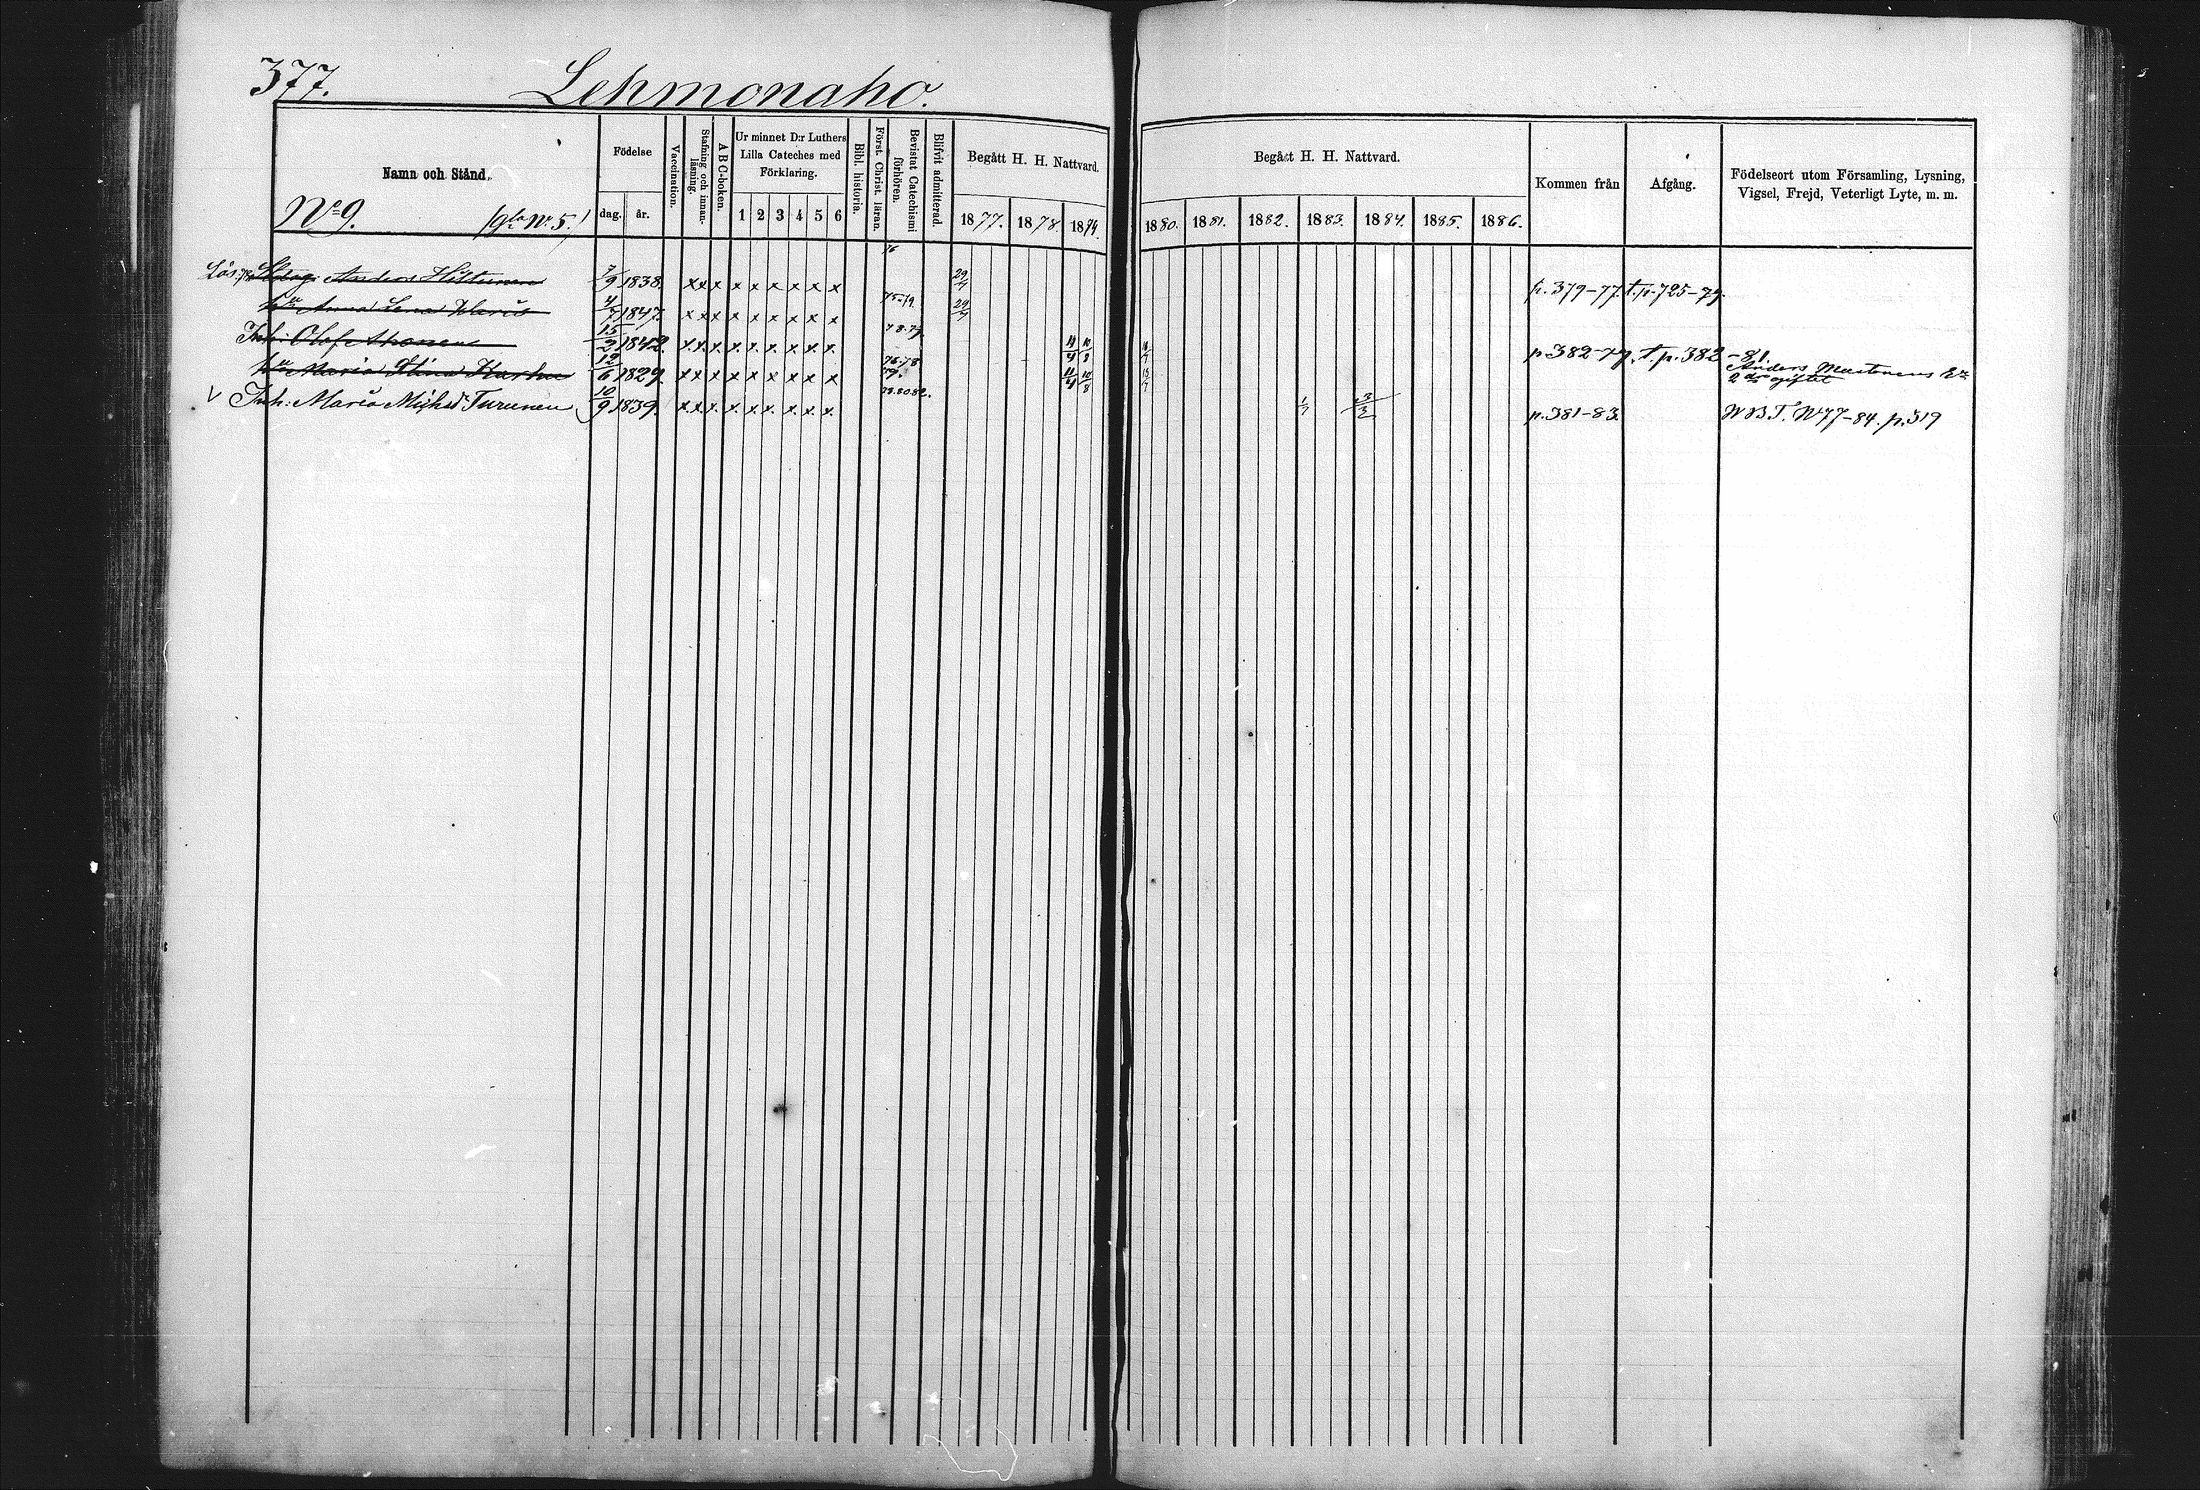 377. Lehmonaho.
Namn och Stånd.
Födelse
dag. år.
Vaccination.
Stafning och innan-läsning.
A B C-boken.
Ur minnet D:r Luthers
Lilla Cateches med
Förklaring.
1 2 3 4 5 6
Bibl. historia.
Först. Christ. läran.
Bevistat Catechismi förhören.
Blifvit admitterad.
Begått H. H. Nattvard.
1877. 1878. 1879.
Begått H. H. Nattvard.
1880. 1881. 1882. 1883. 1884. 1885. 1886.
Kommen från
Afgång.
Födelseort utom Församling, Lysning,
Vigsel, Frejd, Veterligt Lyte, m. m.
No 9. No 5.
76
Anders Hiltunen 7/9 1838. x x x x x x x x x 29/7 p. 379-77. t. p. 725-79.
Anna Lena 4/7 1847. x x x x x x x x x 75-79. 29/7
Inh: Olof Ahonen 15/2 1842. x. x. x. x. x. x. x. x. x. 78.79. 11/4 10/8 p. 382-79. t. p. 382-81.
Maria Stina Karhu 12/6 1829. x x x x x x x x x 76-78 79. 11/4 10/8 Anders Martonens
2 dra giftet
v Inh: Maria Michelsdr Turunen 10/9 1839. x x x. x. x x. x. x. x. 78.80.82. 1/7 p. 381-83. No 77-84. p. 519